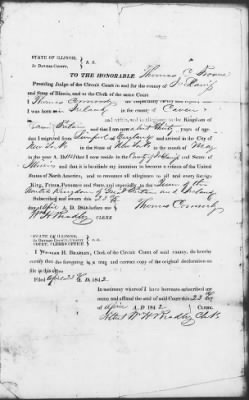 STATE OF ILLINOIS,
IN DAVIESS COUNTY. } S. S.
TO THE HONORABLE Thomas C. Browne
Presiding Judge of the Circuit Court in and for the county of Jo Daviess
and State of Illinois, and to the Clerk of the same Court
Thomas Conmody respectfully
I was born in Ireland in the county of Cavan
and allegiance to the Kingdom of
Great Britain and that I am about thirty years of age
that I migrated from England and arrived in the City of
New York in the State of New York in the month of May
in the year A. D. that I now reside in the County of Jo Daviess and State of
Illinois and that it is bonafide my intention to become a citizen of the United
States of North America, and to renounce all allegiance to all and every foreign
King, Prince, Potentate and State, and especially to the Queen of the
United Kingdom of Great Britain and Ireland
Subscribed and sworn this 23d
day of April A. D. 1842 before me
W H Bradley CLERK
Thomas
STATE OF ILLINOIS,
COURT, CLERK'S OFFICE } S. S.
I WILLIAM H. BRADLEY, Clerk of the Circuit Court of said county, do hereby
certify that the foregoing is a true and correct copy of the original declaration on
file in this office.
Filed April 23d A. D. 1842
In testimony whereof I have hereunto subscribed my
name and affixed the seal of said Court this 23d
of April A. D. 1842 CLERK.
Attest W H Bradley Clk